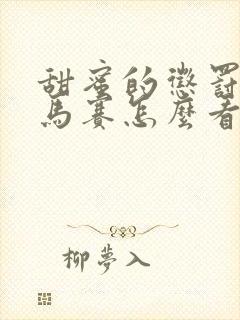 甜蜜的懲罰
馬賽怎麼看
柳夢入